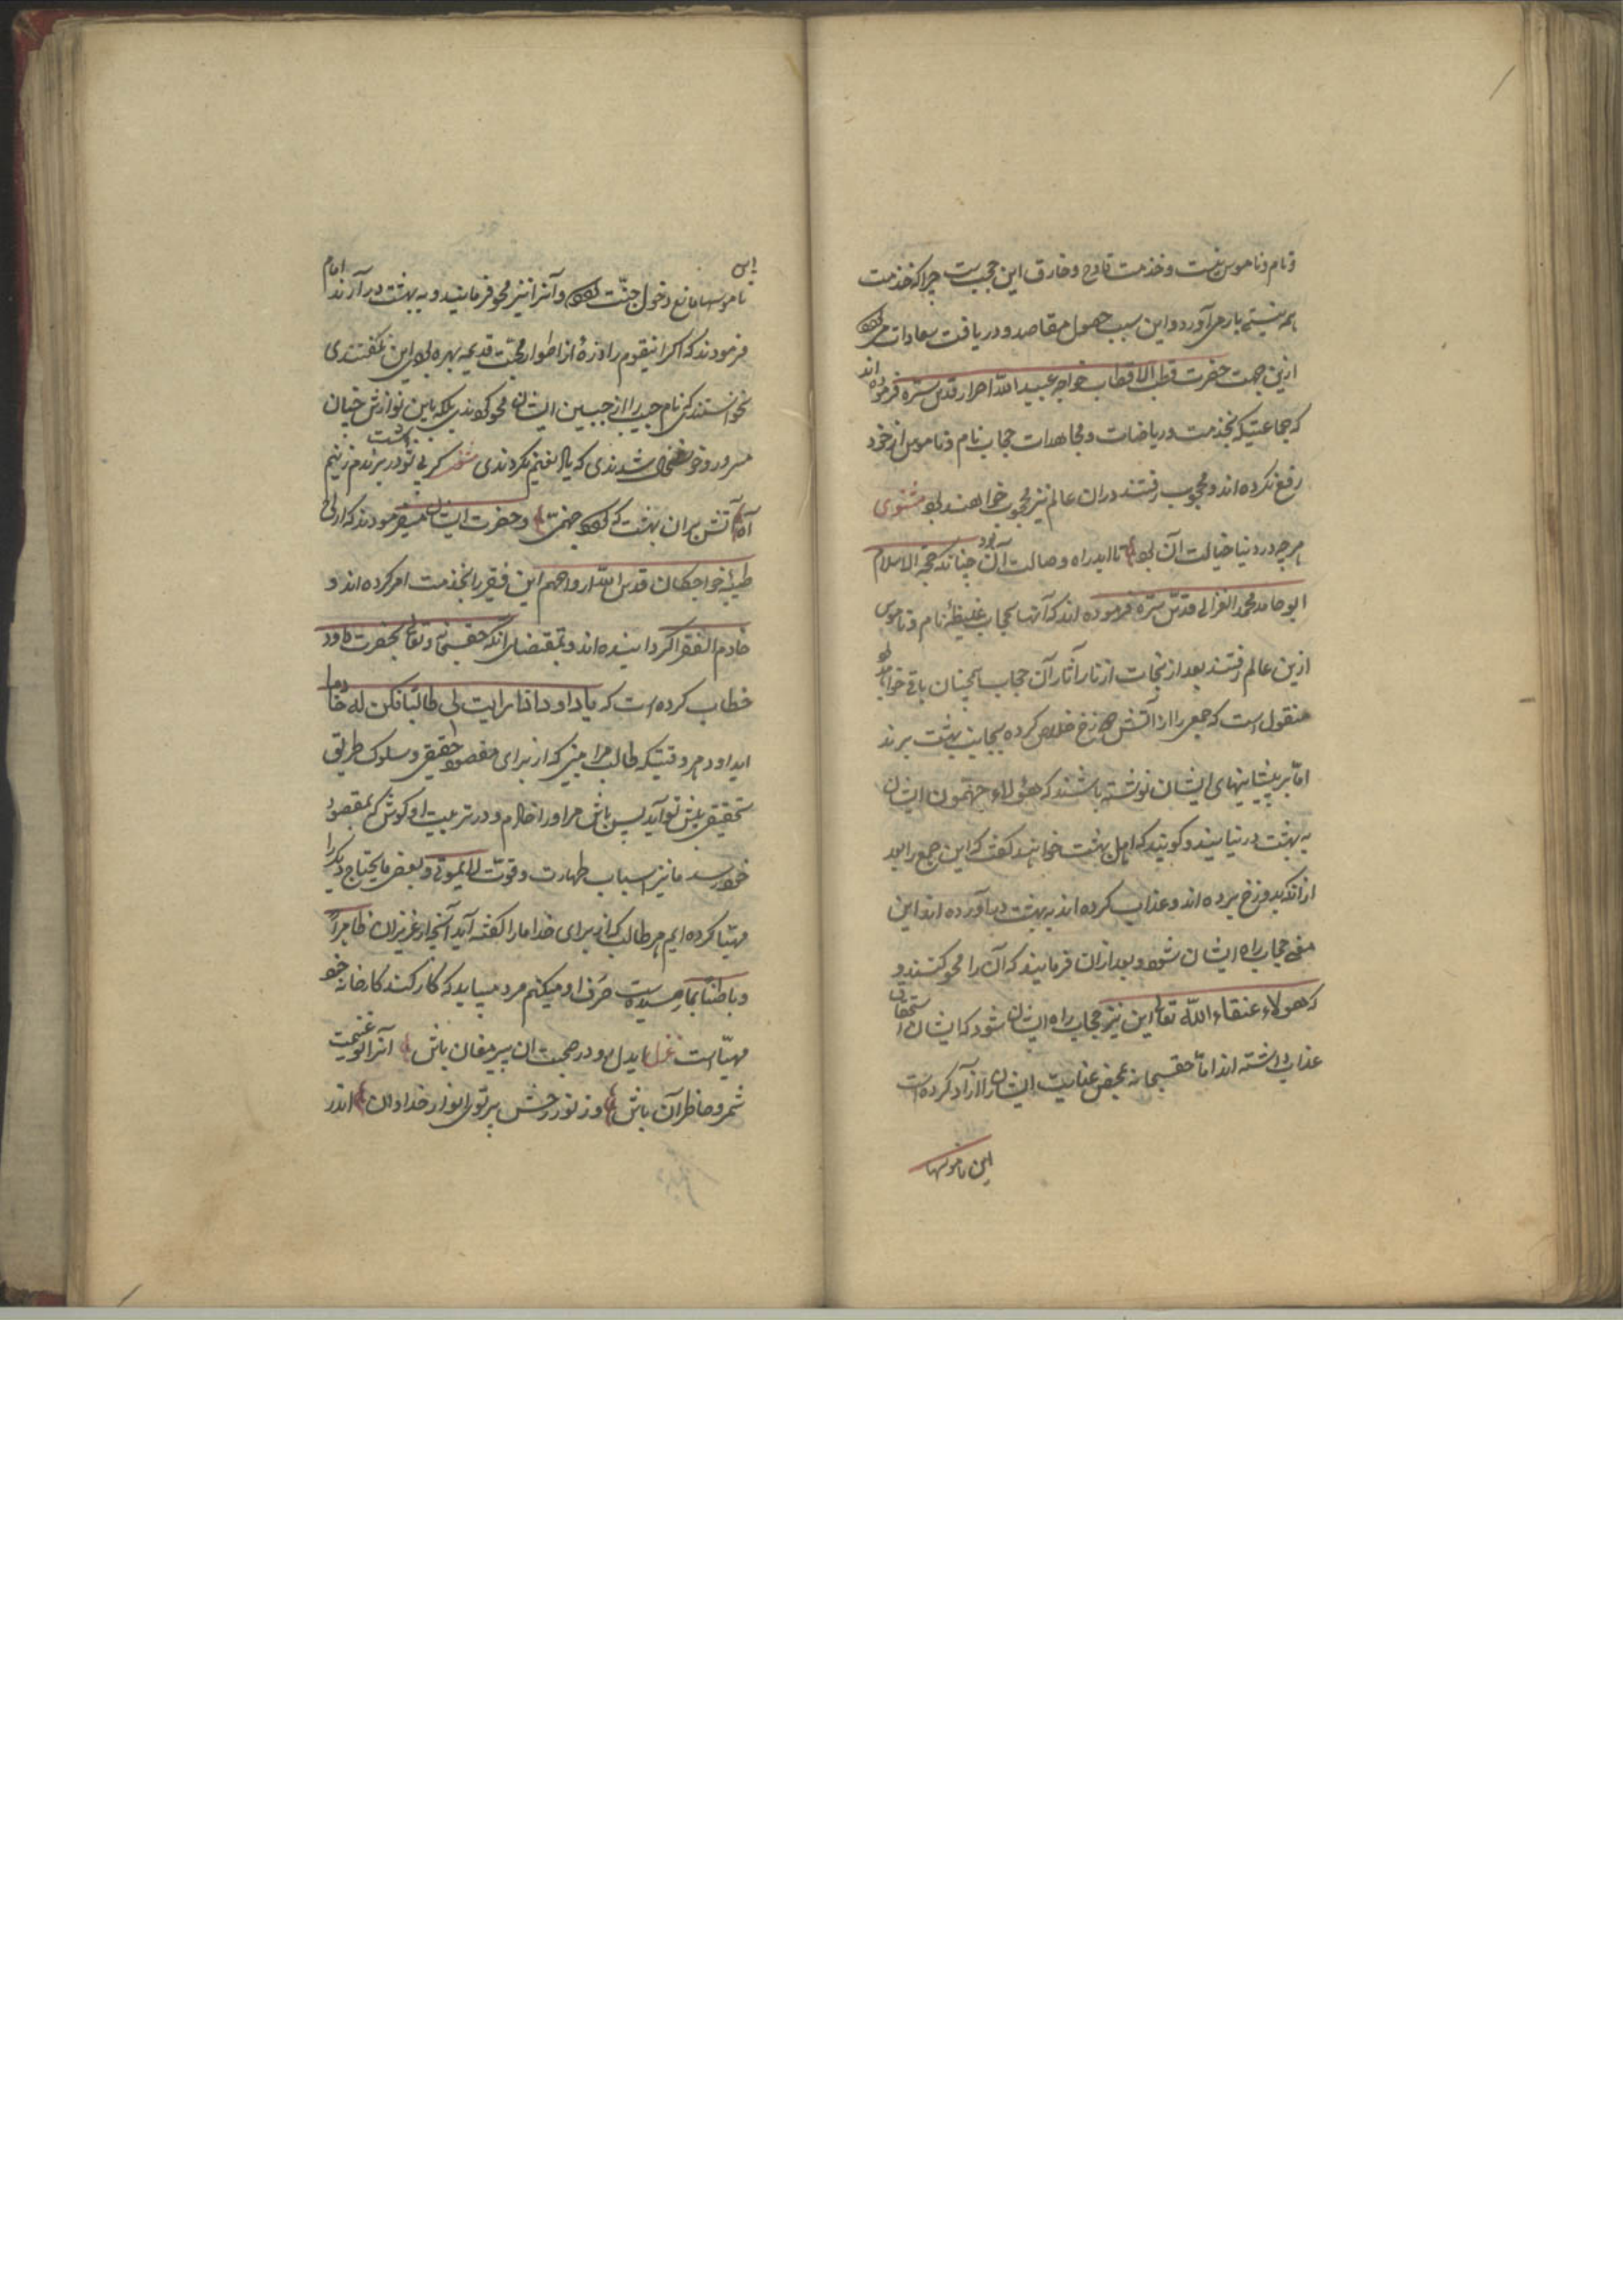 و نام و ناموس نفست و خدمت قادح و خارق این حجب است چرا که خدمت
همه نیستی بار می آورد و این سبب حصول مقاصد و دریافت سعادات می شود
ازین جهت حضرت قطب الاقطاب خواجه عبید الله احرار قدس سره فرموده اند
که جماعتیکه بخدمت و ریاضات و مجاهدات حجاب نام و ناموس از خود
رفع نکرده اند و محجوب رفتند در ان عالم نیز محجوب خواهند بود مثنوی
هرچه در دنیا خیالت آن بود تا ابد راه وصالت آن بود چنانکه حجة الاسلام
ابو حامد محمد الغزالی قدس سره فرموده اند که آنها بحجاب غلیظهٔ نام و ناموس
ازین عالم رفتند بعد از نجات از نار آثار آن حجاب همچنان باقی خواهد بود
منقول است که جمعی را از آتش دوزخ خلاص کرده بجانب بهشت برند
اما بر پیشانیهای ایشان نوشته باشند که هؤلاء جهنمیون ایشان
به بهشت در نیایند و گویند که اهل بهشت خواهند گفت که این جمع را بعد
از انکه بدوزخ برده اند و عذاب کرده اند به بهشت در آورده اند این
معنی حجاب راه ایشان شود و بعد از ان فرمایند که آن را محو کنند و
که هؤلاء عتقاء الله تعالی این نیز حجاب راه ایشان شود که ایشان استحقاق
عذاب داشته اند اما حقسبحانه بمحض عنایت ایشان را آزاد کرده است
این ناموسها
این
ناموسها مانع دخول جنت شود و آنرا نیز محو فرمایند و به بهشت در آرند امام
فرمودند که اگر اینقوم را ذرهٔ از اطوار محبت قدیمه بهره بودی این نگفتندی
نخواستندی که نام حبیب را از جبین ایشان محو کردندی بلکه باین نوازش چنان
مسرور و خوشحال شدندی که یاد نعیم نکردندی شعر گر بی تو در بهشت برندم زنیم
آه آتش بران بهشت که شود جهنمت و حضرت ایشان میفرمودند که ارواح
طیبهٔ خواجگان قدس الله ارواحهم این فقیر را بخدمت امر کرده اند و
خادم الفقرا گردانیده اند و بمقتضای انکه حقسبحانه و تعالی بحضرت داود
خطاب کرده است که یا داود اذا رایت لی طالبا فکن له خادما
ای داود هر وقتیکه طالب مرا بینی که از برای مقصود حقیقی و سلوک طریق
تحقیق پیش تو آید پس باش مر او را خادم و در تربیت او کوش که بمقصود
خود رسد ما نیز اسباب طهارت و قوت لا یموتی و بعضی ما یحتاج دیگر را
مهیا کرده ایم هر طالب که از برای خدا ما را گفته آید آنچه از عزیزان ظاهراً
و باطناً بما رسیده است صرف او میکنم مرد میباید که کار کند کارخانه خود
مهیا است غزل ایدل رو در صحبت ان پیر مغان باش آنرا تو غنیمت
شمر و حاضر آن باش وز نور رخش پرتوی انوار خدا دان اندر